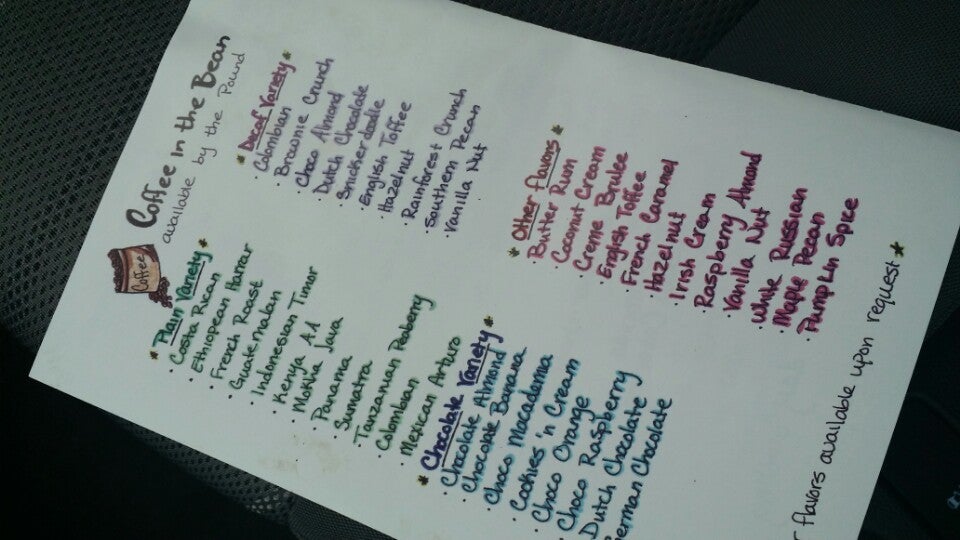 Coffee in the Bean
available by the Pound
Coffee
*Plain Variety*
· Costa Rican
· Ethiopean Harrar
· French Roast
· Guatemalan
· Indonesian Timor
· Kenya AA
· Mokha Java
· Panama
· Sumatra
· Tanzanian Peaberry
· Colombian
· Mexican Arturo
*Decaf Variety*
· Colombian
· Brownie Crunch
· Choco Almond
· Dutch Chocolate
· Snickerdoodle
· English Toffee
· Hazelnut
· Rainforest Crunch
· Southern Pecan
· Vanilla Nut
*Chocolate Variety*
· Chocolate Almond
· Chocolate Banana
· Choco Macadamia
· Cookies 'n Cream
· Choco Orange
· Choco Raspberry
Dutch Chocolate
German Chocolate
*Other Flavors*
· Butter Rum
· Coconut Cream
· Creme Brulee
· English Toffee
· French Caramel
· Hazelnut
· Irish Cream
· Raspberry Almond
· Vanilla Nut
· White Russian
· Maple Pecan
· Pumpkin Spice
flavors available upon request*